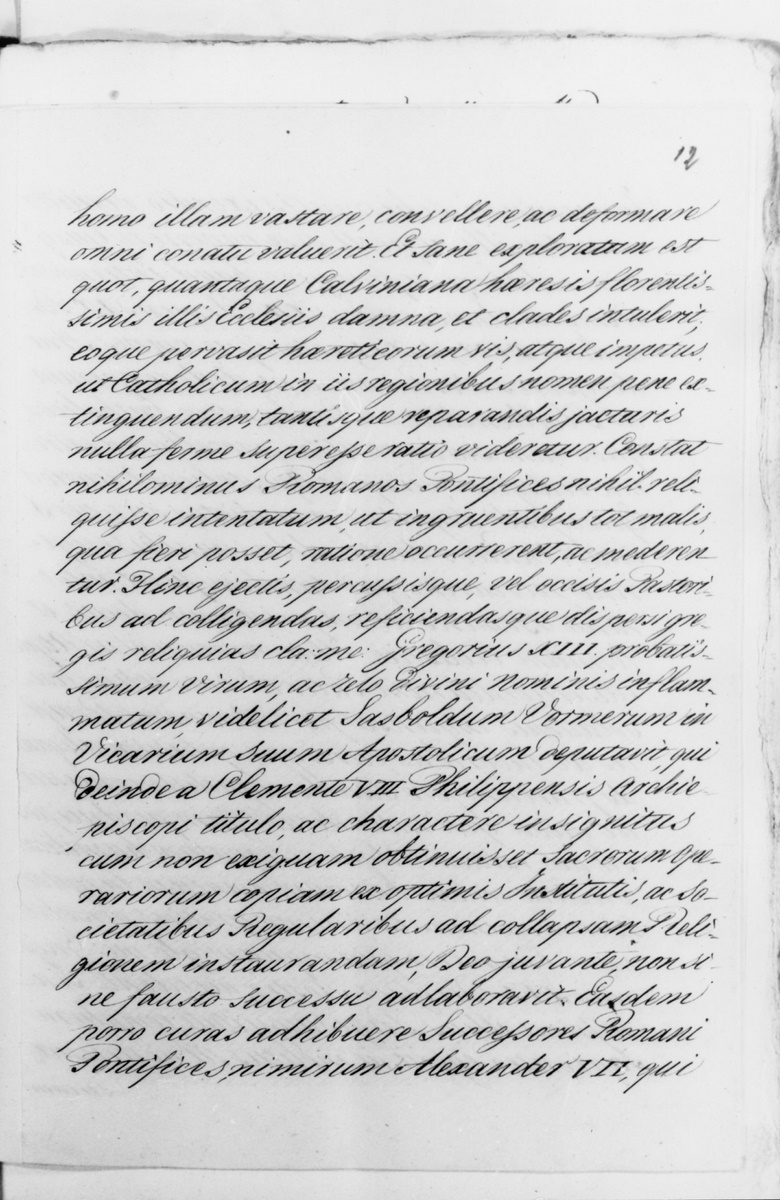 12
homo illam vastare, convellere, ac deformare
omni conatu valuerit. Et sane exploratum est
quot, quantaque Calviniana hæresis florentis-
simis illis Ecclesiis damna, et clades intulerit,
eoque pervasit hæreticorum vis, atque impetus,
ut Catholicum in iis regionibus nomen pene ex-
tinguendum, tantisque reparandis jacturis
nulla ferme superesse ratio videretur. Constat
nihilominus Romanos Pontifices nihil reli-
quisse intentatum, ut ingruentibus tot malis,
qua fieri posset, ratione occurrerent, ac mederen
tur. Hinc ejectis, percussisque, vel occisis Pastori-
bus ad colligendas, reficiendasque dispersi gre-
gis reliquias cla: me: Gregorius XIII. probatis-
simum Virum, ac zelo Divini Nominis inflam-
matum, videlicet Sasboldum Vormerum in
Vicarium suum Apostolicum deputavit, qui
deinde a Clemente VIII Philippensis Archie-
piscopi titulo, ac charactere insignitus
cum non exiguam obtinuisset Sacrorum Ope-
rariorum copiam ex optimis Institutis, ac So-
cietatibus Regularibus ad collapsam Reli-
gionem instaurandam, Deo juvante, non si-
ne fausto successu adlaboravit. Easdem
porro curas adhibuere Successores Romani
Pontifices, nimirum Alexander VII, qui